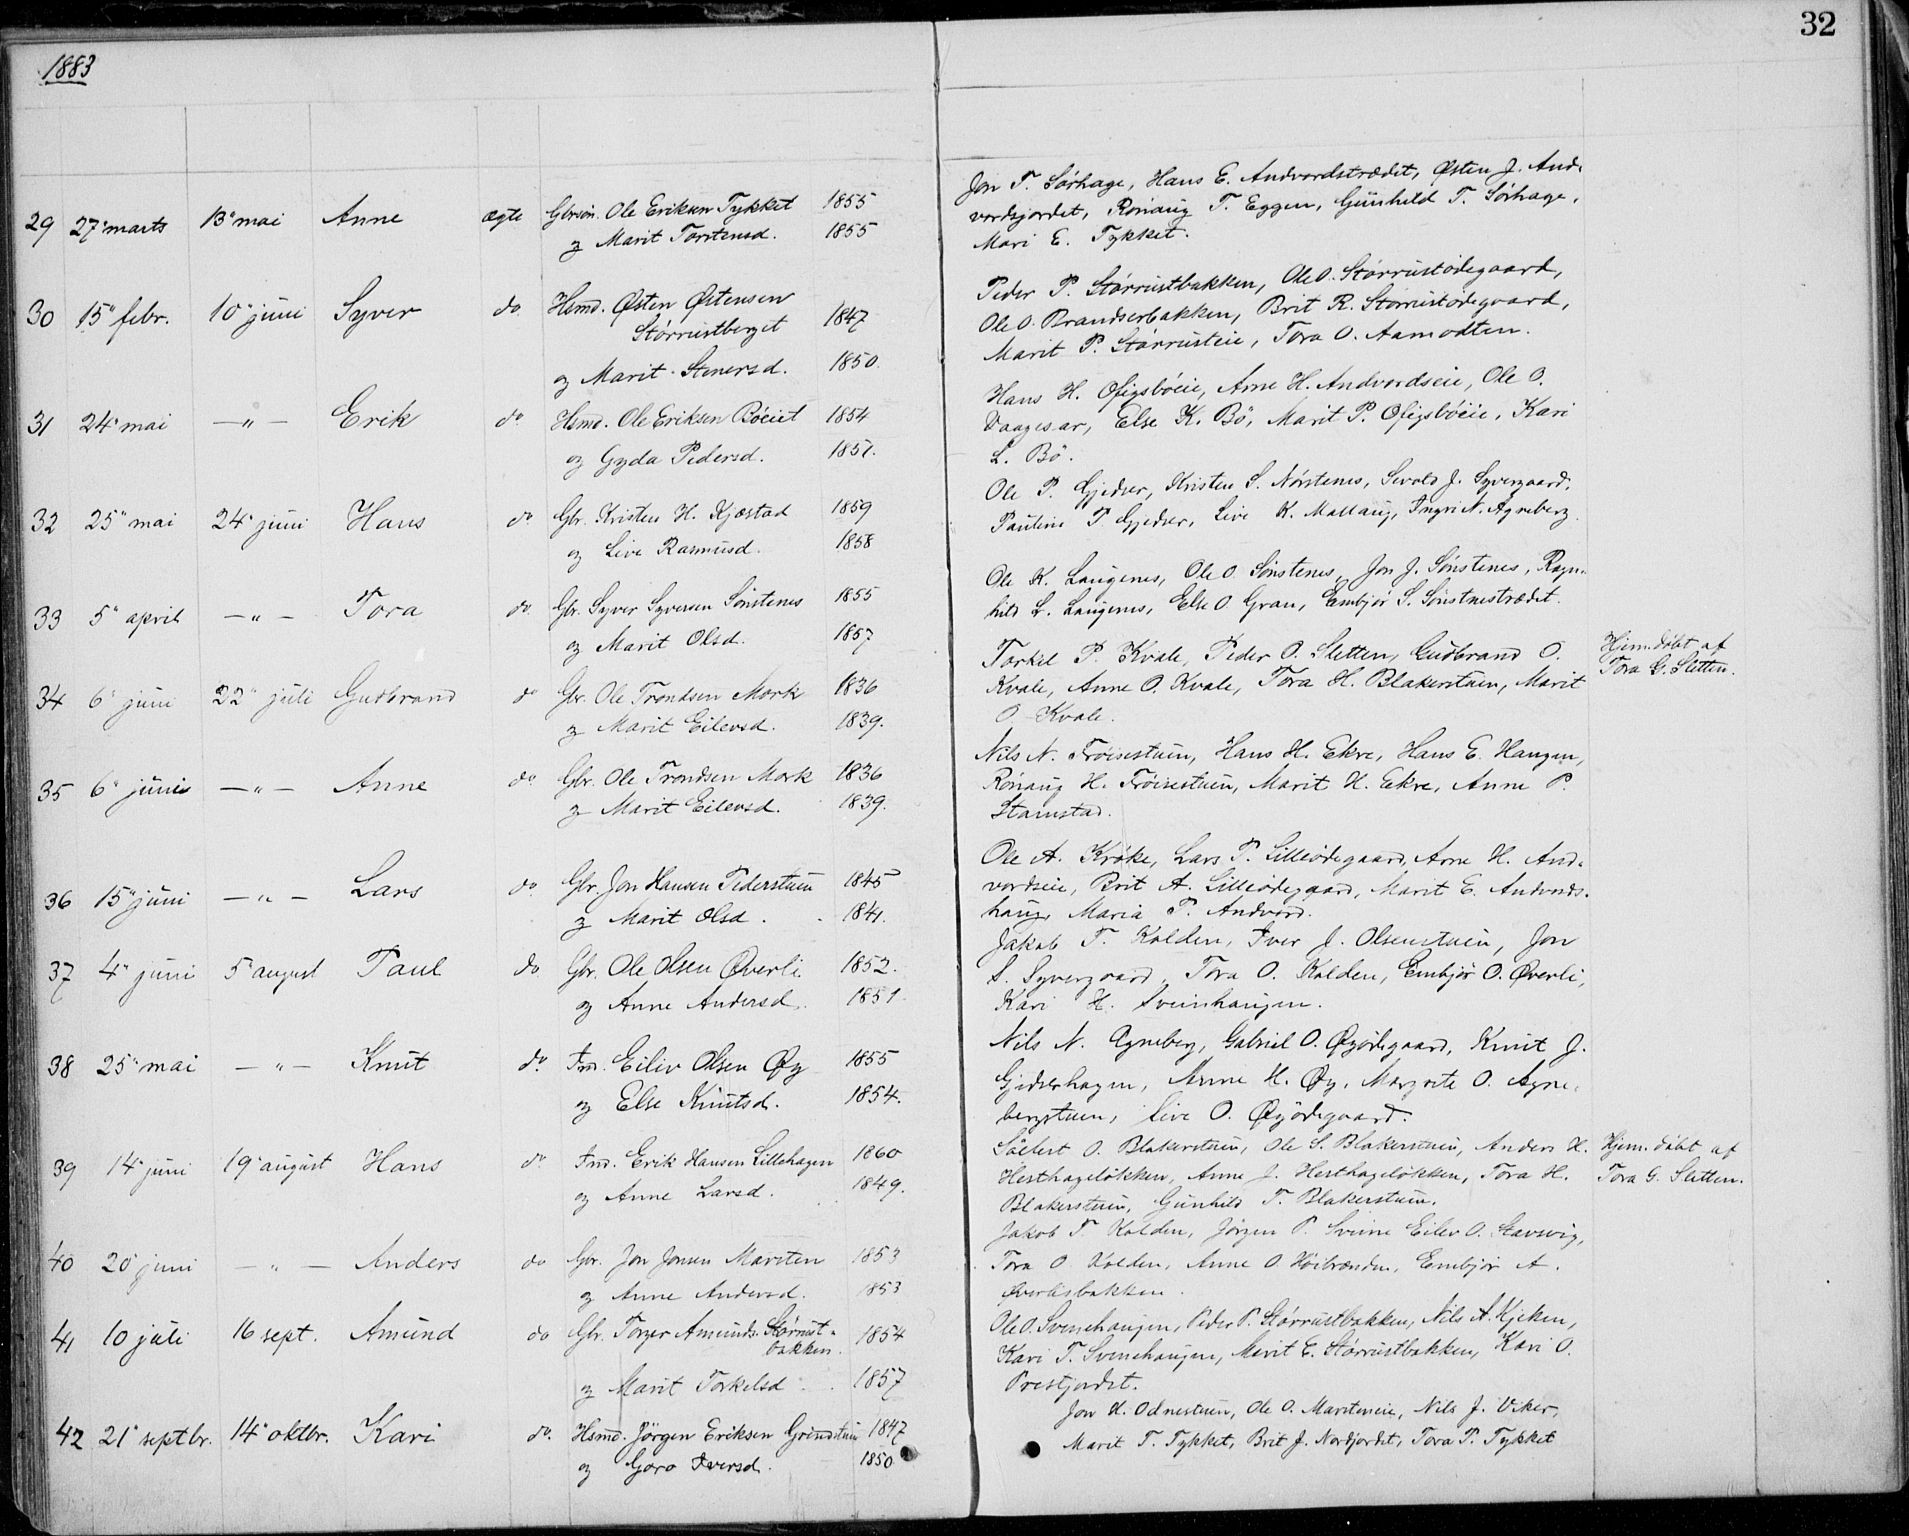 32
1883
29 27" marts 13" mai Anne ægte Gbrsøn. Ole Eriksen Tykket 1855
og Marit Torstensd. 1855
Jon T. Sørhage, Hans E. Andvordstrædet, Østen J. And-
vordsjordet, Rønaug T. Eggen, Gunhild T. Sørhage,
Mari E. Tykket.
30 15" febr. 10" juni Syver do Hsmd. Østen Østensen
Størrustberget 1847
og Marit Stenersd. 1850
Peder P. Størrustbakken, Ole O. Størrustødegaard,
Ole O. Brandserbakken, Brit R. Størrustødegaard,
Marit P. Størrusteie, Tora O. Aamodten.
31 24" mai —"— Erik do Hsmd. Ole Eriksen Bøeiet 1854
og Gyda Pedersd. 1851.
Hans H. Ofigsbøeie, Arne H. Andvordseie, Ole O.
Vaagesar, Else K. Bø, Marit P. Ofigsbøeie, Kari
L. Bø.
32 25" mai 24" juni Hans do Gbr. Kristen H. Kjæstad 1859
og Live Rasmusd. 1858
Ole P. Gjedser, Kristen S. Nørstenes, Sevald J. Syvergaard,
Pauline P. Gjedser, Live K. Mallaug, Ingri N. Agneberg
33 5" april —"— Tora do Gbr. Syver Syversen Sønstenes 1855
og Marit Olsd. 1857
Ole K. Laugenes, Ole O. Sønstenes, Jon J. Sønstenes, Ragn-
hild L. Laugenes, Else O. Gran, Embjør S. Sønstnestrædet.
34 6" juni 22" juli Gudbrand do Gbr. Ole Trondsen Mork 1836
og Marit Eilevsd. 1839.
Torkil P. Kvale, Peder O. Sletten, Gudbrand O.
Kvale, Anne O. Kvale, Tora H. Blakerstuen, Marit
O. Kvale.
Hjem.døbt af
Tora G. Sletten.
35 6" juni —"— Anne do Gbr. Ole Trondsen Mork 1836
og Marit Eilevsd. 1839.
Nils N. Frøisestuen, Hans H. Ekre, Hans E. Haugen,
Rønaug H. Frøisestuen, Marit H. Ekre, Anne P.
Stamstad.
36 15" juni —"— Lars do Gbr. Jon Hansen Pederstuen 1845
og Marit Olsd. 1841.
Ole A. Krøke, Lars P. Lilleødegaard, Arne H. And-
vordseie, Brit A. Lilleødegaard, Marit E. Andvords-
haug, Maria P. Andvord.
37 4" juni 5" august Paul do Gbr. Ole Olsen Øverli 1852.
og Anne Andersd. 1851.
Jakob T. Kolden, Iver J. Olsenstuen, Jon
S. Syvergaard, Tora O. Kolden, Embjør O. Øverli,
Kari H. Sveinhaugen.
38 25" mai —"— Knut do Ind. Eiliv Olsen Øy 1855
og Else Knutsd. 1854.
Nils N. Agneberg, Gabriel O. Øyødegaard, Knut J.
Gjedserhagen, Anne H. Øy, Margrete O. Agne-
bergstuen, Live O. Øyødegaard.
39 14" juni 19" august Hans do Ind. Erik Hansen Lillehagen 1860
og Anne Larsd. 1849.
O. Blakerstuen, Ole S. Blakerstuen, Anders H.
Hesthageløkken, Anne J. Hesthageløkken, Tora H.
Blakerstuen, Gunhild T. Blakerstuen.
Hjem.døbt af
Tora G. Sletten.
40 20" juni —"— Anders do Gbr. Jon Jonsen Marsten 1853
og Anne Andersd. 1853
Jakob T. Kolden, Jørgen P. Svinne Eilev O. Stavsvig,
Tora O. Kolden, Anne O. Høibrænden, Embjør A.
Øverlisbakken.
41 10 juli 16 sept. Amund do Gbr. Torger Amunds. Størrust-
bakken. 1854
og Marit Torkelsd. 1857
Ole O. Svenehaugen, Peder P. Størrustbakken, Nils A. Kjeken,
Kari T. Svenehaugen, Marit E. Størrustbakken, Kari O.
Prestjordet.
42 21" septbr. 14" oktbr. Kari do. Hsmd. Jørgen Eriksen Grindstuen 1847
og Goro Iversd. 1850
Jon H. Odnestuen, Ole O. Marsteneie, Nils J. Viker,
Marit T. Tykket, Brit J. Nordjordet, Tora P. Tykket